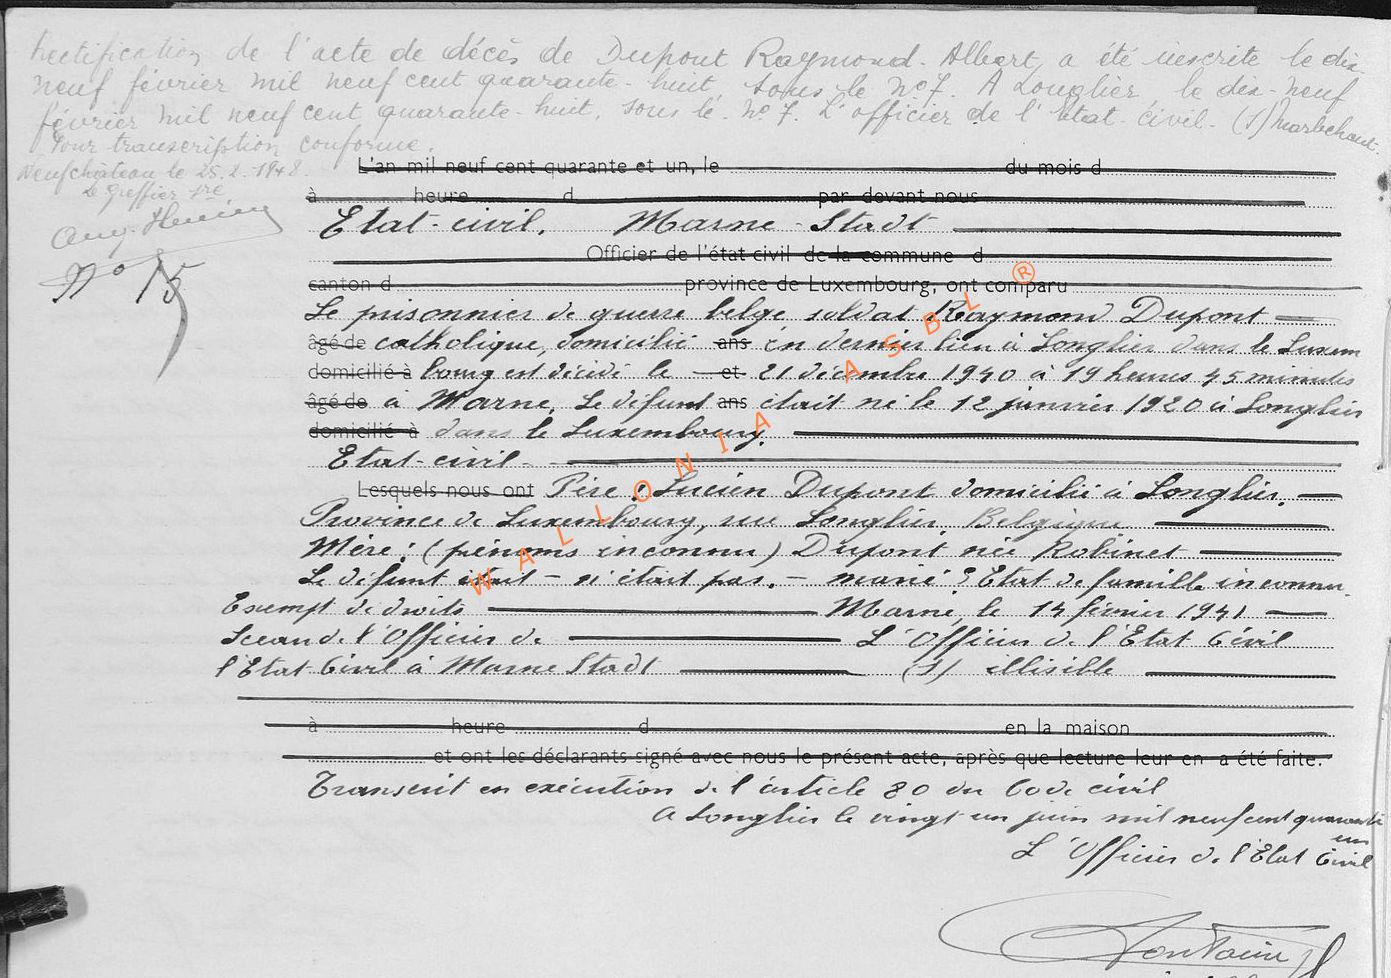 Rectification de l'acte de décès de Dupont Raymond-Albert, a été inscrite le dix-
neuf février mil neuf cent quarante-huit, sous le n° 7. A Longlier le dix-neuf
février mil neuf cent quarante-huit, sous le n° 7. L'officier de l'Etat-civil-(s)
Pour transcription conforme.
Neufchâteau le 25.2.1948.
Le Greffier
N° 15
L'an mil neuf cent quarante et un, le du mois d
à heure d par devant nous
Etat-civil. Marne-Stadt
Officier de l'état civil de la commune d
canton d province de Luxembourg, ont comparu
Le prisonnier de guerre belge, soldat Raymond Dupont
âgé de catholique, domicilié ans en dernier lieu à Longlier dans le Luxem
domicilié à bourg est décédé le et 21 décembre 1940 à 19 heures 45 minutes
âgé de à Marne. Le défunt ans était né le 12 janvier 1920 à Longlier
domicilié à dans le Luxembourg.
Etat-civil-
Lesquels nous ont Père : Lucien Dupont domicilié à Longlier.
Province de Luxembourg, rue Longlier Belgique
Mère : (prénoms inconnu) Dupont née Robinet
Le défunt était - n'était pas. - marié ? Etat de famille inconnu.
Exempt de droits Marne, le 14 février 1941
Sceau de l'Officier de L'Officier de l'Etat Civil
l'Etat-Civil à Marne Stadt (s) illisible
à heure d en la maison
et ont les déclarants signé avec nous le présent acte, après que lecture leur en a été faite.
Transcrit en exécution de l'article 80 du Code civil
A Longlier le vingt un juin mil neuf cent quarante
un
L'Officier de l'Etat Civil
WALLONIA ASBL ®